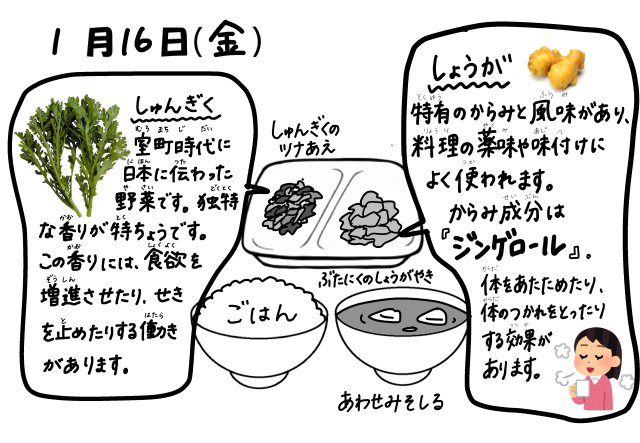 1月16日(金)
しゅんぎく
室町時代に
日本に伝わった
野菜です。独特
な香りが特ちょうです。
この香りには、食欲を
増進させたり、せき
を止めたりする働き
があります。
しゅんぎくの
ツナあえ
ぶたにくのしょうがやき
ごはん
あわせみそしる
しょうが
特有のからみと風味があり、
料理の薬味や味付けに
よく使われます。
からみ成分は
『ジンゲロール』。
体をあたためたり、
体のつかれをとったり
する効果が
あります。